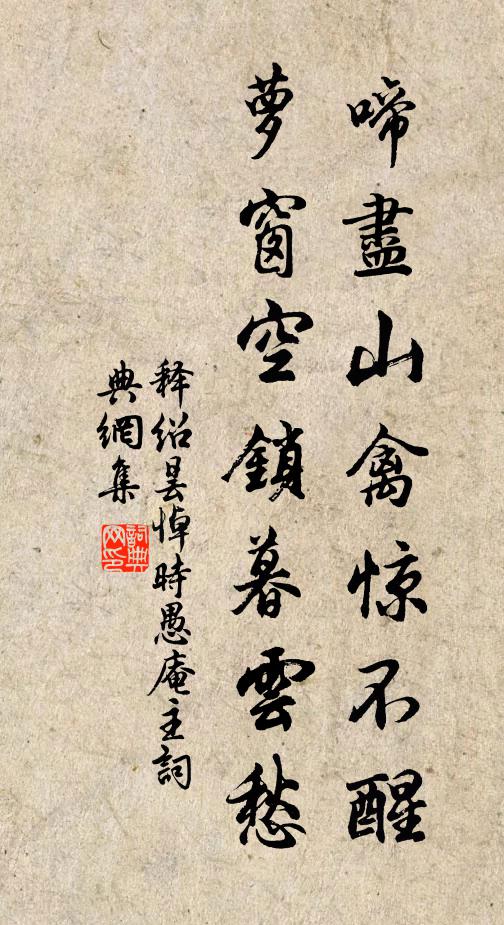 啼盡山禽惊不醒
萝窗空鎖暮雲愁
释绍昙悼時愚庵主詞
典網集
詞典
网印